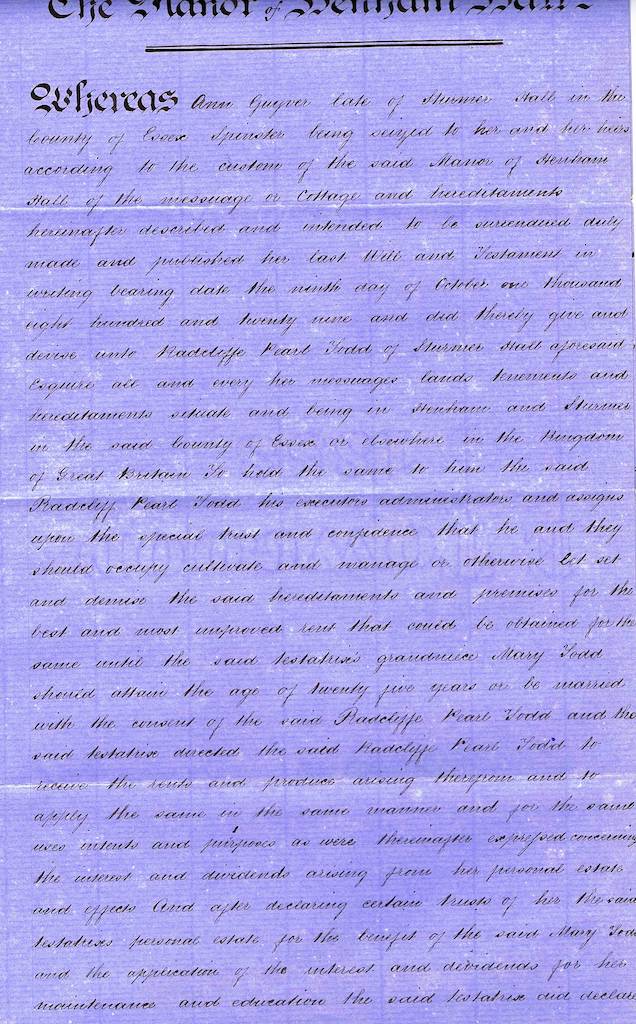 The Manor of Henham Hall
Whereas Ann Guyver late of Sturmer Hall in the
County of Essex Spinster being seized to her and her heirs
according to the custom of the said Manor of Henham
Hall of the messuage or Cottage and hereditaments
hereinafter described and intended to be surrendered duly
made and published her last Will and Testament in
writing bearing date the ninth day of October one thousand
eight hundred and twenty nine and did thereby give and
devise unto Radcliffe Pearl Todd of Sturmer Hall aforesaid
Esquire all and every her messuages lands tenements and
hereditaments situate and being in Henham and Sturmer
in the said County of Essex or elsewhere in the Kingdom
of Great Britain To hold the same to him the said
Radcliff Pearl Todd his executors administrators and assigns
upon the special trust and confidence that he and they
should occupy cultivate and manage or otherwise let set
and demise the said hereditaments and premises for the
best and most improved rent that could be obtained for the
same until the said testatrix's grandniece Mary Todd
should attain the age of twenty five years or be married
with the consent of the said Radcliffe Pearl Todd and the
said testatrix directed the said Radcliffe Pearl Todd to
receive the rents and produce arising therefrom and to
apply the same in the same manner and for the same
uses intents and purposes as were thereinafter expressed concerning
the interest and dividends arising from her personal estate
and effects And after declaring certain trusts of her the said
testatrixs personal estate for the benefit of the said Mary Todd
and the application of the interest and dividends for her
maintenance and education the said testatrix did declare